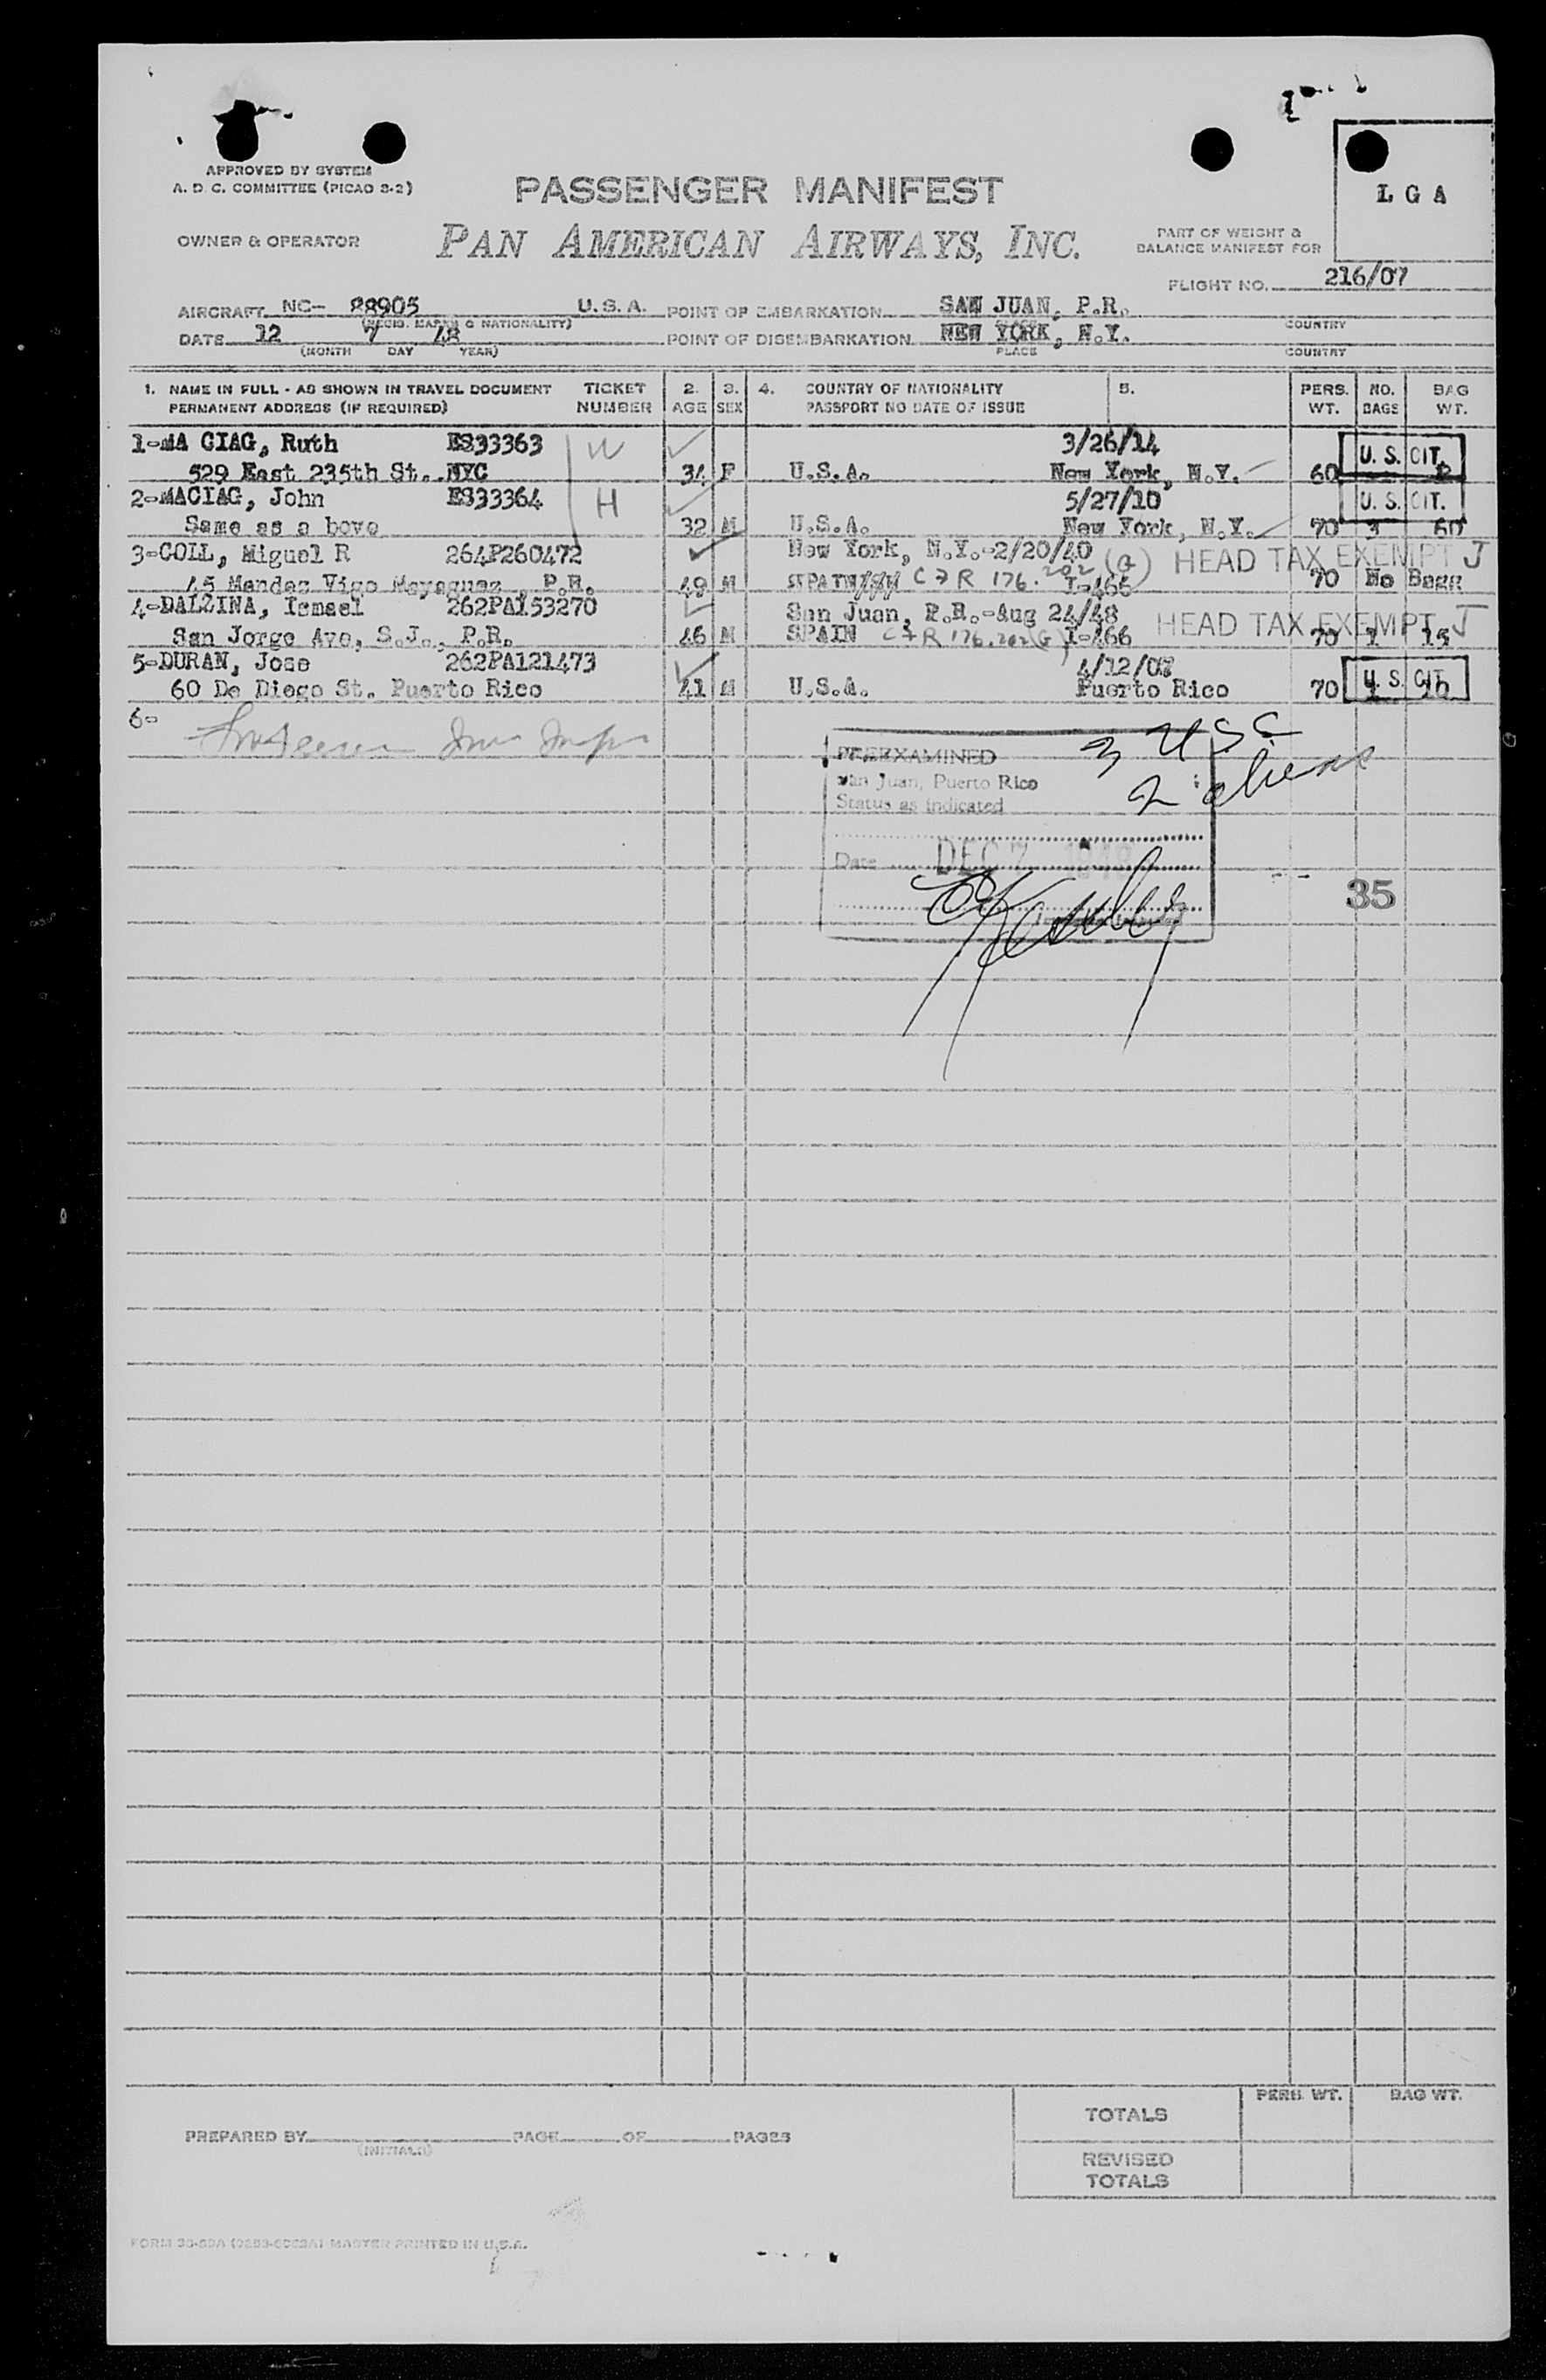 APPROVED BY SYSTEM
A. D. C. COMMITTEE (PICAO S-2)
PASSENGER MANIFEST
LGA
OWNER & OPERATOR
PAN AMERICAN AIRWAYS, INC.
PART OF WEIGHT &
BALANCE MANIFEST FOR
FLIGHT NO. 216/07
AIRCRAFT NC- 88905 U.S.A. POINT OF EMBARKATION SAN JUAN, P.R.
(REGIS. MARKS & NATIONALITY) COUNTRY
DATE 12 7 48 POINT OF DISEMBARKATION NEW YORK, N.Y.
(MONTH DAY YEAR) PLACE COUNTRY
1. NAME IN FULL - AS SHOWN IN TRAVEL DOCUMENT TICKET 2. 3. 4. COUNTRY OF NATIONALITY 5. PERS. NO. BAG
PERMANENT ADDRESS (IF REQUIRED) NUMBER AGE SEX PASSPORT NO DATE OF ISSUE WT. BAGS WT.
1-MA CIAG, Ruth ES33363 W 3/26/14 U. S. CIT.
529 East 235th St., NYC 34 F U.S.A. New York, N.Y. 60
2-MACIAG, John ES33364 H 5/27/10 U. S. CIT.
Same as a bove 32 M U.S.A. New York, N.Y. 70 3 60
3-COLL, Miguel R 264P260472 New York, N.Y.-2/20/40 (G) HEAD TAX EXEMPT J
45 Mendez Vigo Mayaguez, P.R. 49 M SPAIN C F R 176.202 I-466 70 No Bagg
4-DALZINA, Ismael 262PA153270 San Juan, P.R.-Aug 24/48 HEAD TAX EXEMPT J
San Jorge Ave, S.J., P.R. 46 M SPAIN C F R 176.202(G) I-466 70 1 15
5-DURAN, Jose 262PA121473 4/12/07 U. S. CIT
60 De Diego St. Puerto Rico 41 M U.S.A. Puerto Rico 70 1 10
6-
PREEXAMINED 3 USC
San Juan, Puerto Rico 2 aliens
Status as indicated
Date DEC 7 1948
35
TOTALS PERS. WT. BAG WT.
PREPARED BY PAGE OF PAGES
(INITIALS)
REVISED
TOTALS
MASTER PRINTED IN U.S.A.